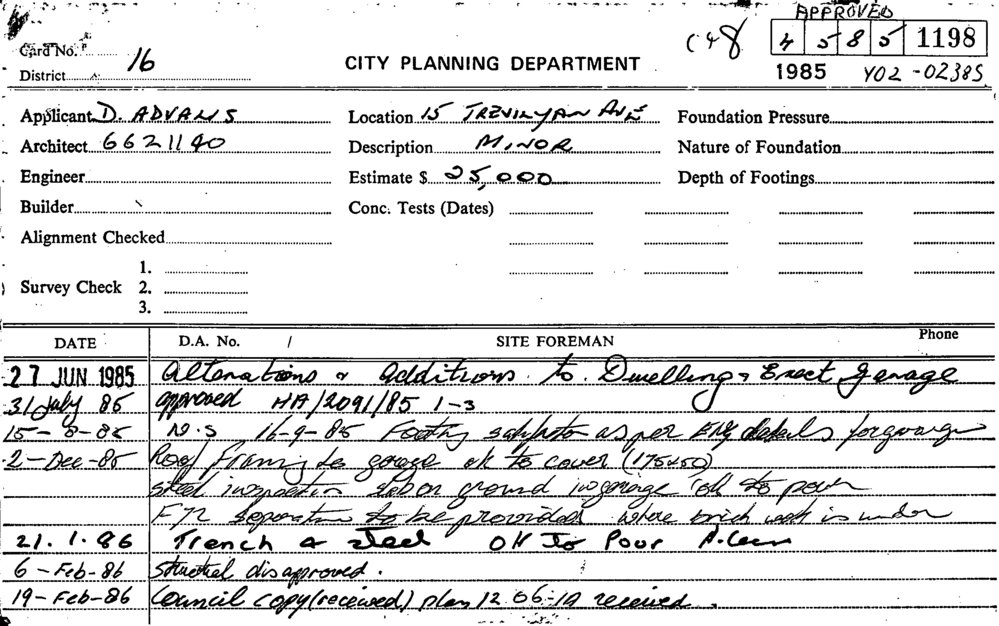 APPROVED
Card No. 16 C48 4 5 8 5 1198
District CITY PLANNING DEPARTMENT 1985 Y02-02385
Applicant D. ADVANS Location 15 TREVILYAN AVE Foundation Pressure
Architect 6621140 Description MINOR Nature of Foundation
Engineer Estimate $ 25,000 Depth of Footings
Builder Conc. Tests (Dates)
Alignment Checked
1.
Survey Check 2.
3.
DATE D.A. No. / SITE FOREMAN Phone
27 JUN 1985 Alterations & Additions to Dwelling & Erect Garage
31 July 85 approved HA/2091/85 1-3
15-8-85 N.S 16-9-85 Footing as per Eng details for garage
2-Dec-85 Roof Framing to garage ok to cover (175x50)
steel inspection slab on ground in garage ok to pour
separation to be provided where brick work is under
21.1.86 Trench & steel OK To Pour
6-Feb-86 disapproved.
19-Feb-86 Council copy (received) plan 12 06-19 received.